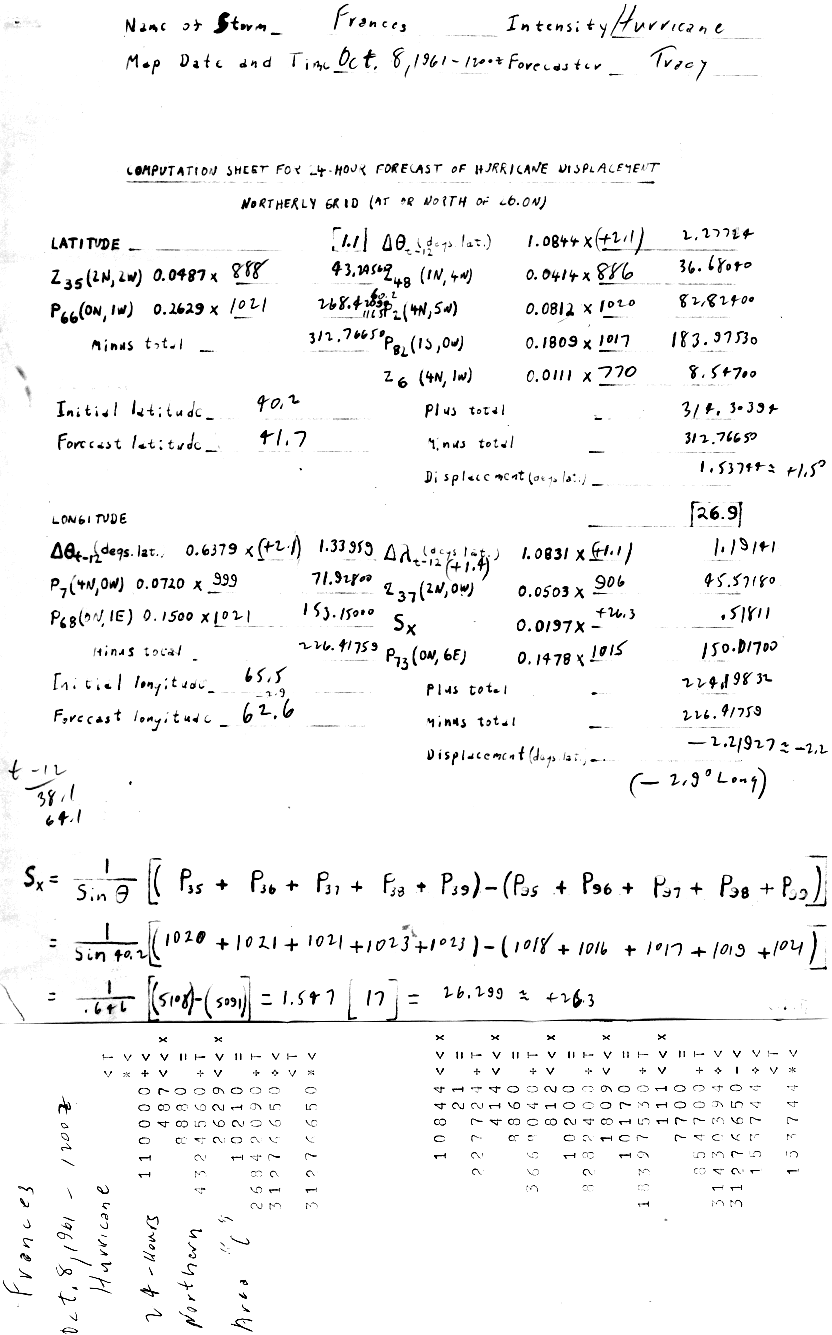 Name of Storm_ Frances Intensity Hurricane
Map Date and Time Oct. 8, 1961 - 1200z Forecaster_ Tracy
COMPUTATION SHEET FOR 24-HOUR FORECAST OF HURRICANE DISPLACEMENT
NORTHERLY GRID (AT OR NORTH OF 26.0N)
LATITUDE _ [1.1] Δθt-12 (degs. lat.) 1.0844 x (+2.1) 2.27724
Z35(2N,2W) 0.0487 x 888 43.24560 Z48 (1N,4W) 0.0414 x 886 36.68040
P66(0N,1W) 0.2629 x 1021 268.42090 P2(4N,5W) 0.0812 x 1020 82.82400
Minus total _ 312.76650 P82(1S,0W) 0.1809 x 1017 183.97530
Z6 (4N,1W) 0.0111 x 770 8.54700
Initial latitude_ 40.2 Plus total _ 314.30394
Forecast latitude_ 41.7 Minus total _ 312.76650
Displacement (degs lat.) _ 1.53744 ≈ +1.5°
LONGITUDE [26.9]
Δθt-12 (degs. lat.) 0.6379 x (+2.1) 1.33959 Δλt-12 (degs lat.) 1.0831 x (+1.1) 1.19141
(+1.4)
P7(4N,0W) 0.0720 x 999 71.92800 Z37(2N,0W) 0.0503 x 906 45.57180
P68(0N,1E) 0.1500 x 1021 153.15000 Sx 0.0197 x +26.3 .51811
Minus total _ 226.41759 P73(0N,6E) 0.1478 x 1015 150.01700
Initial longitude_ 65.5 Plus total _ 224.19832
-2.9
Forecast longitude_ 62.6 Minus total _ 226.41759
Displacement (degs lat.) _ -2.21927 ≈ -2.2
(- 2.9° Long)
t -12
38.1
64.1
Sx = 1/Sin θ [(P35 + P36 + P37 + P38 + P39) - (P95 + P96 + P97 + P98 + P99)]
= 1/Sin 40.2 [(1020 + 1021 + 1021 + 1023 + 1023) - (1018 + 1016 + 1017 + 1019 + 1021)]
= 1/.646 [(5108) - (5091)] = 1.547 [17] = 26.299 ≈ +26.3
Frances
Oct. 8, 1961 - 1200z
Hurricane
24-Hours
Northern
Area "C"
< T
* <
110000 + <
487 < < x
8880 =
4324560 + T
2629 < < x
10210 =
26842090 + T
31276650 + <
< T
31276650 * <
10844 < < x
21 =
227724 + T
414 < < x
8860 =
3668040 + T
812 < < x
10200 =
8282400 + T
1809 < < x
10170 =
18397530 + T
111 < < x
7700 =
854700 + T
31430394 + <
31276650 - <
153744 + <
< T
153744 * <